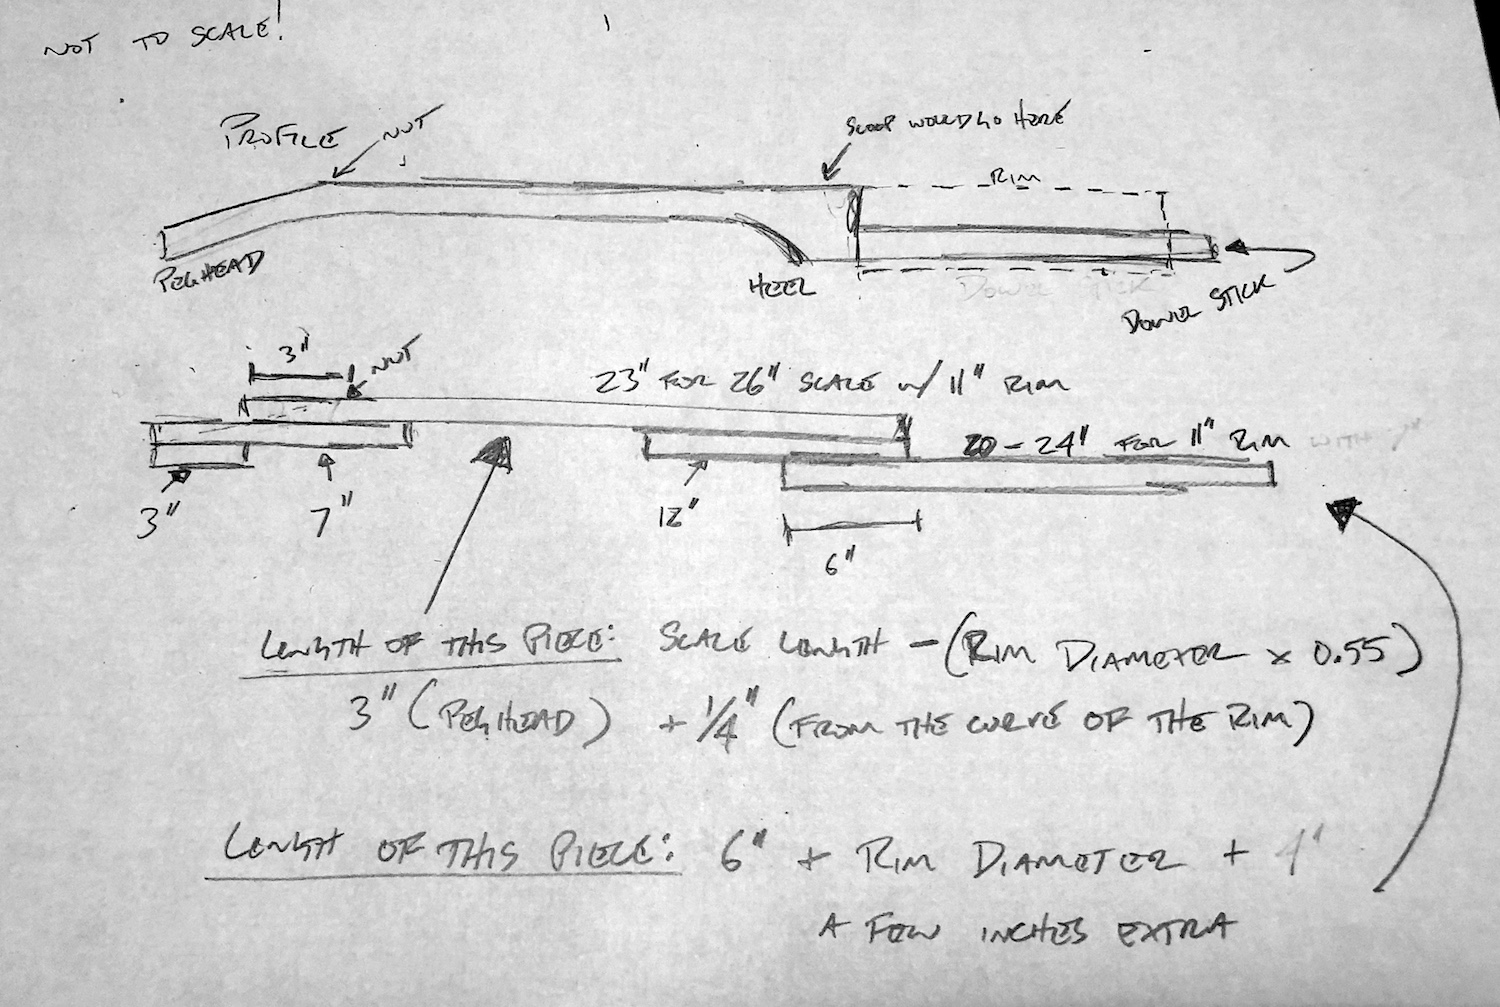 NOT TO SCALE!
PROFILE
NUT
SCOOP WOULD GO HERE
RIM
PEGHEAD
HEEL
DOWEL STICK
DOWEL STICK
3"
NUT
23" FOR 26" SCALE W/ 11" RIM
20-24" FOR 11" RIM WITH
3"
7"
12"
6"
LENGTH OF THIS PIECE: SCALE LENGTH - (RIM DIAMETER x 0.55)
3" (PEGHEAD) + 1/4" (FROM THE CURVE OF THE RIM)
LENGTH OF THIS PIECE: 6" + RIM DIAMETER + 4"
A FEW INCHES EXTRA